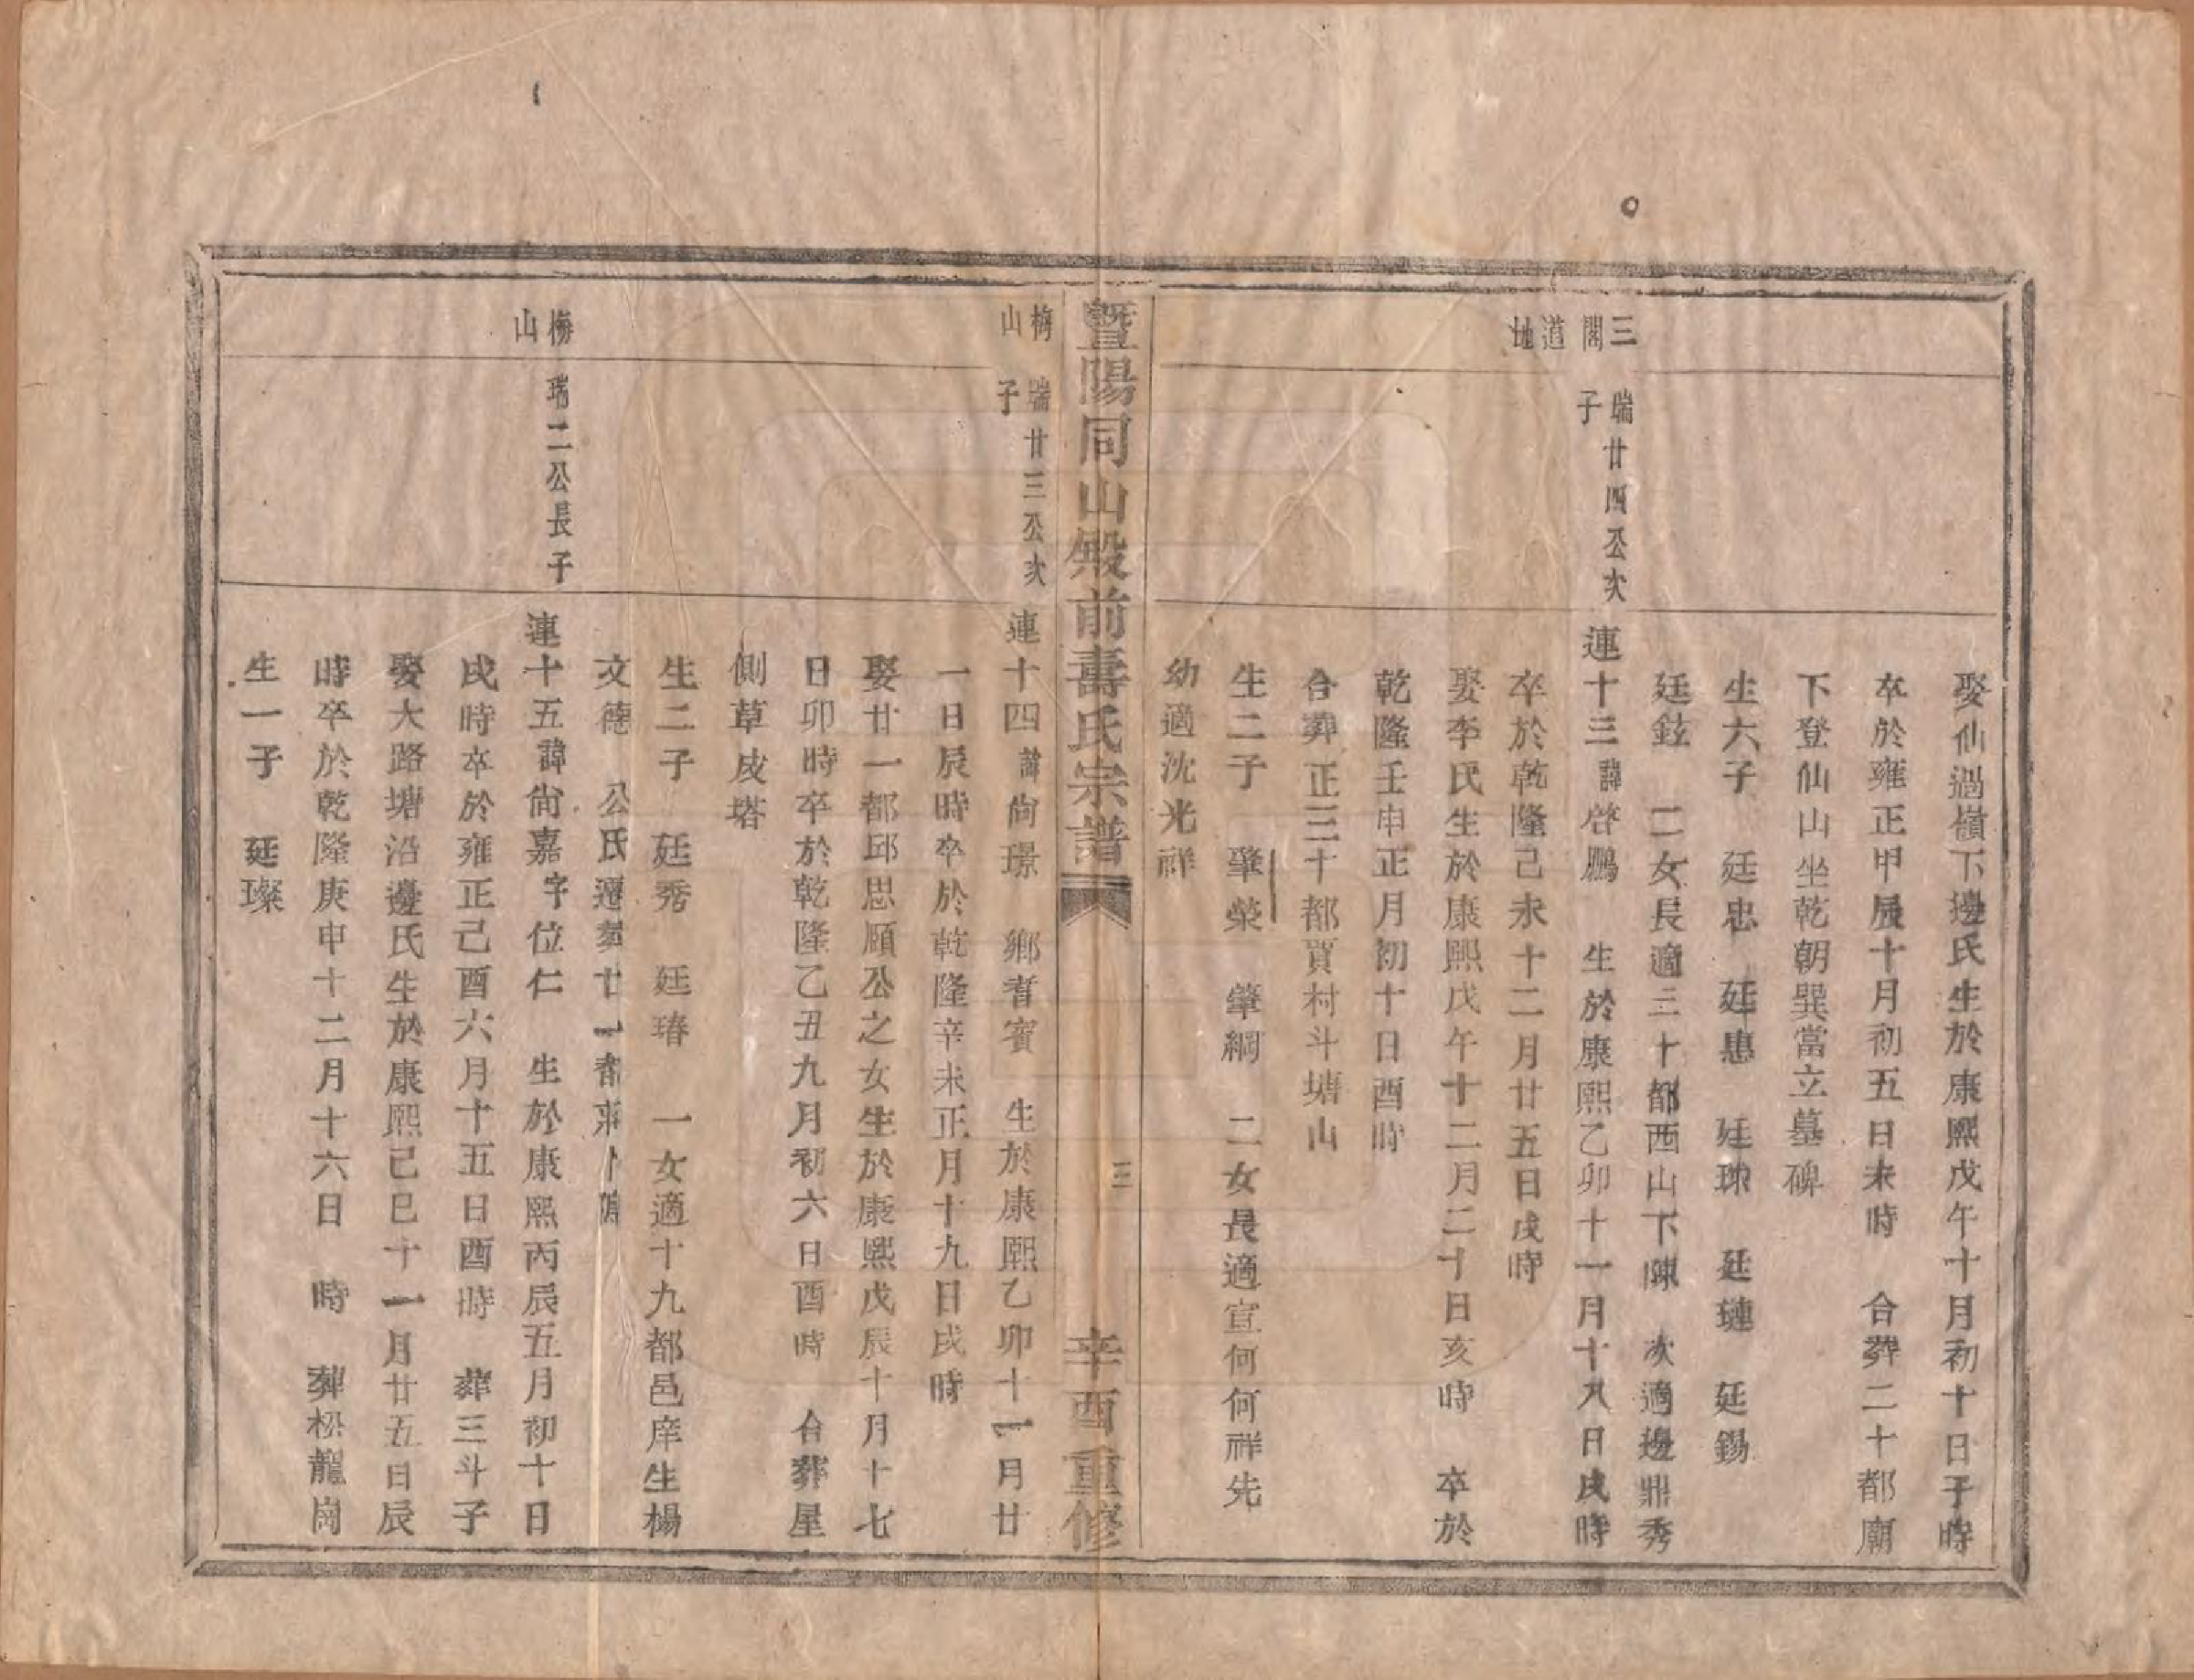 娶仙過嶺下邊氏生於康熙戊午十月初十日子時
卒於雍正甲辰十月初五日未時　合葬二十都廟
下登仙山坐乾朝巽當立墓碑
生六子　廷忠　廷惠　廷球　廷璉　廷錫
廷鉉　二女長適三十都西山下陳　次適邊鼎秀
三閣道地
瑞廿四公次子
連十三諱啓鵬　生於康熙乙卯十一月十八日戌時
卒於乾隆己未十二月廿五日戌時
娶李氏生於康熙戊午十二月二十日亥時　卒於
乾隆壬申正月初十日酉時
合葬正三十都賈村斗塘山
生二子　肇榮　肇綱　二女長適宣何何祥先
幼適沈光祥
暨陽同山殿前壽氏宗譜
三
辛酉重修
梅山
瑞廿三公次子
連十四諱尙璟　鄉耆賓　生於康熙乙卯十一月廿
一日辰時卒於乾隆辛未正月十九日戌時
娶廿一都邱思願公之女生於康熙戊辰十月十七
日卯時卒於乾隆乙丑九月初六日酉時　合葬星
側草皮塔
生二子　廷秀　廷瑃　一女適十九都邑庠生楊
文德　公氏遷葬廿一都
梅山
瑞二公長子
連十五諱尙嘉字位仁　生於康熙丙辰五月初十日
戌時卒於雍正己酉六月十五日酉時　葬三斗子
娶大路塘沿邊氏生於康熙己巳十一月廿五日辰
時卒於乾隆庚申十二月十六日　時　葬松龍崗
生一子　廷璨